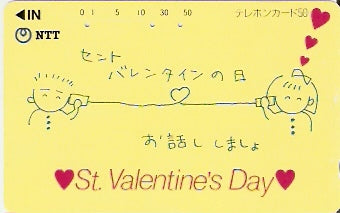 ◀IN
0 1 5 10 30 50
テレホンカード50
NTT
セント
バレンタインの日
お話ししましょ
St. Valentine's Day